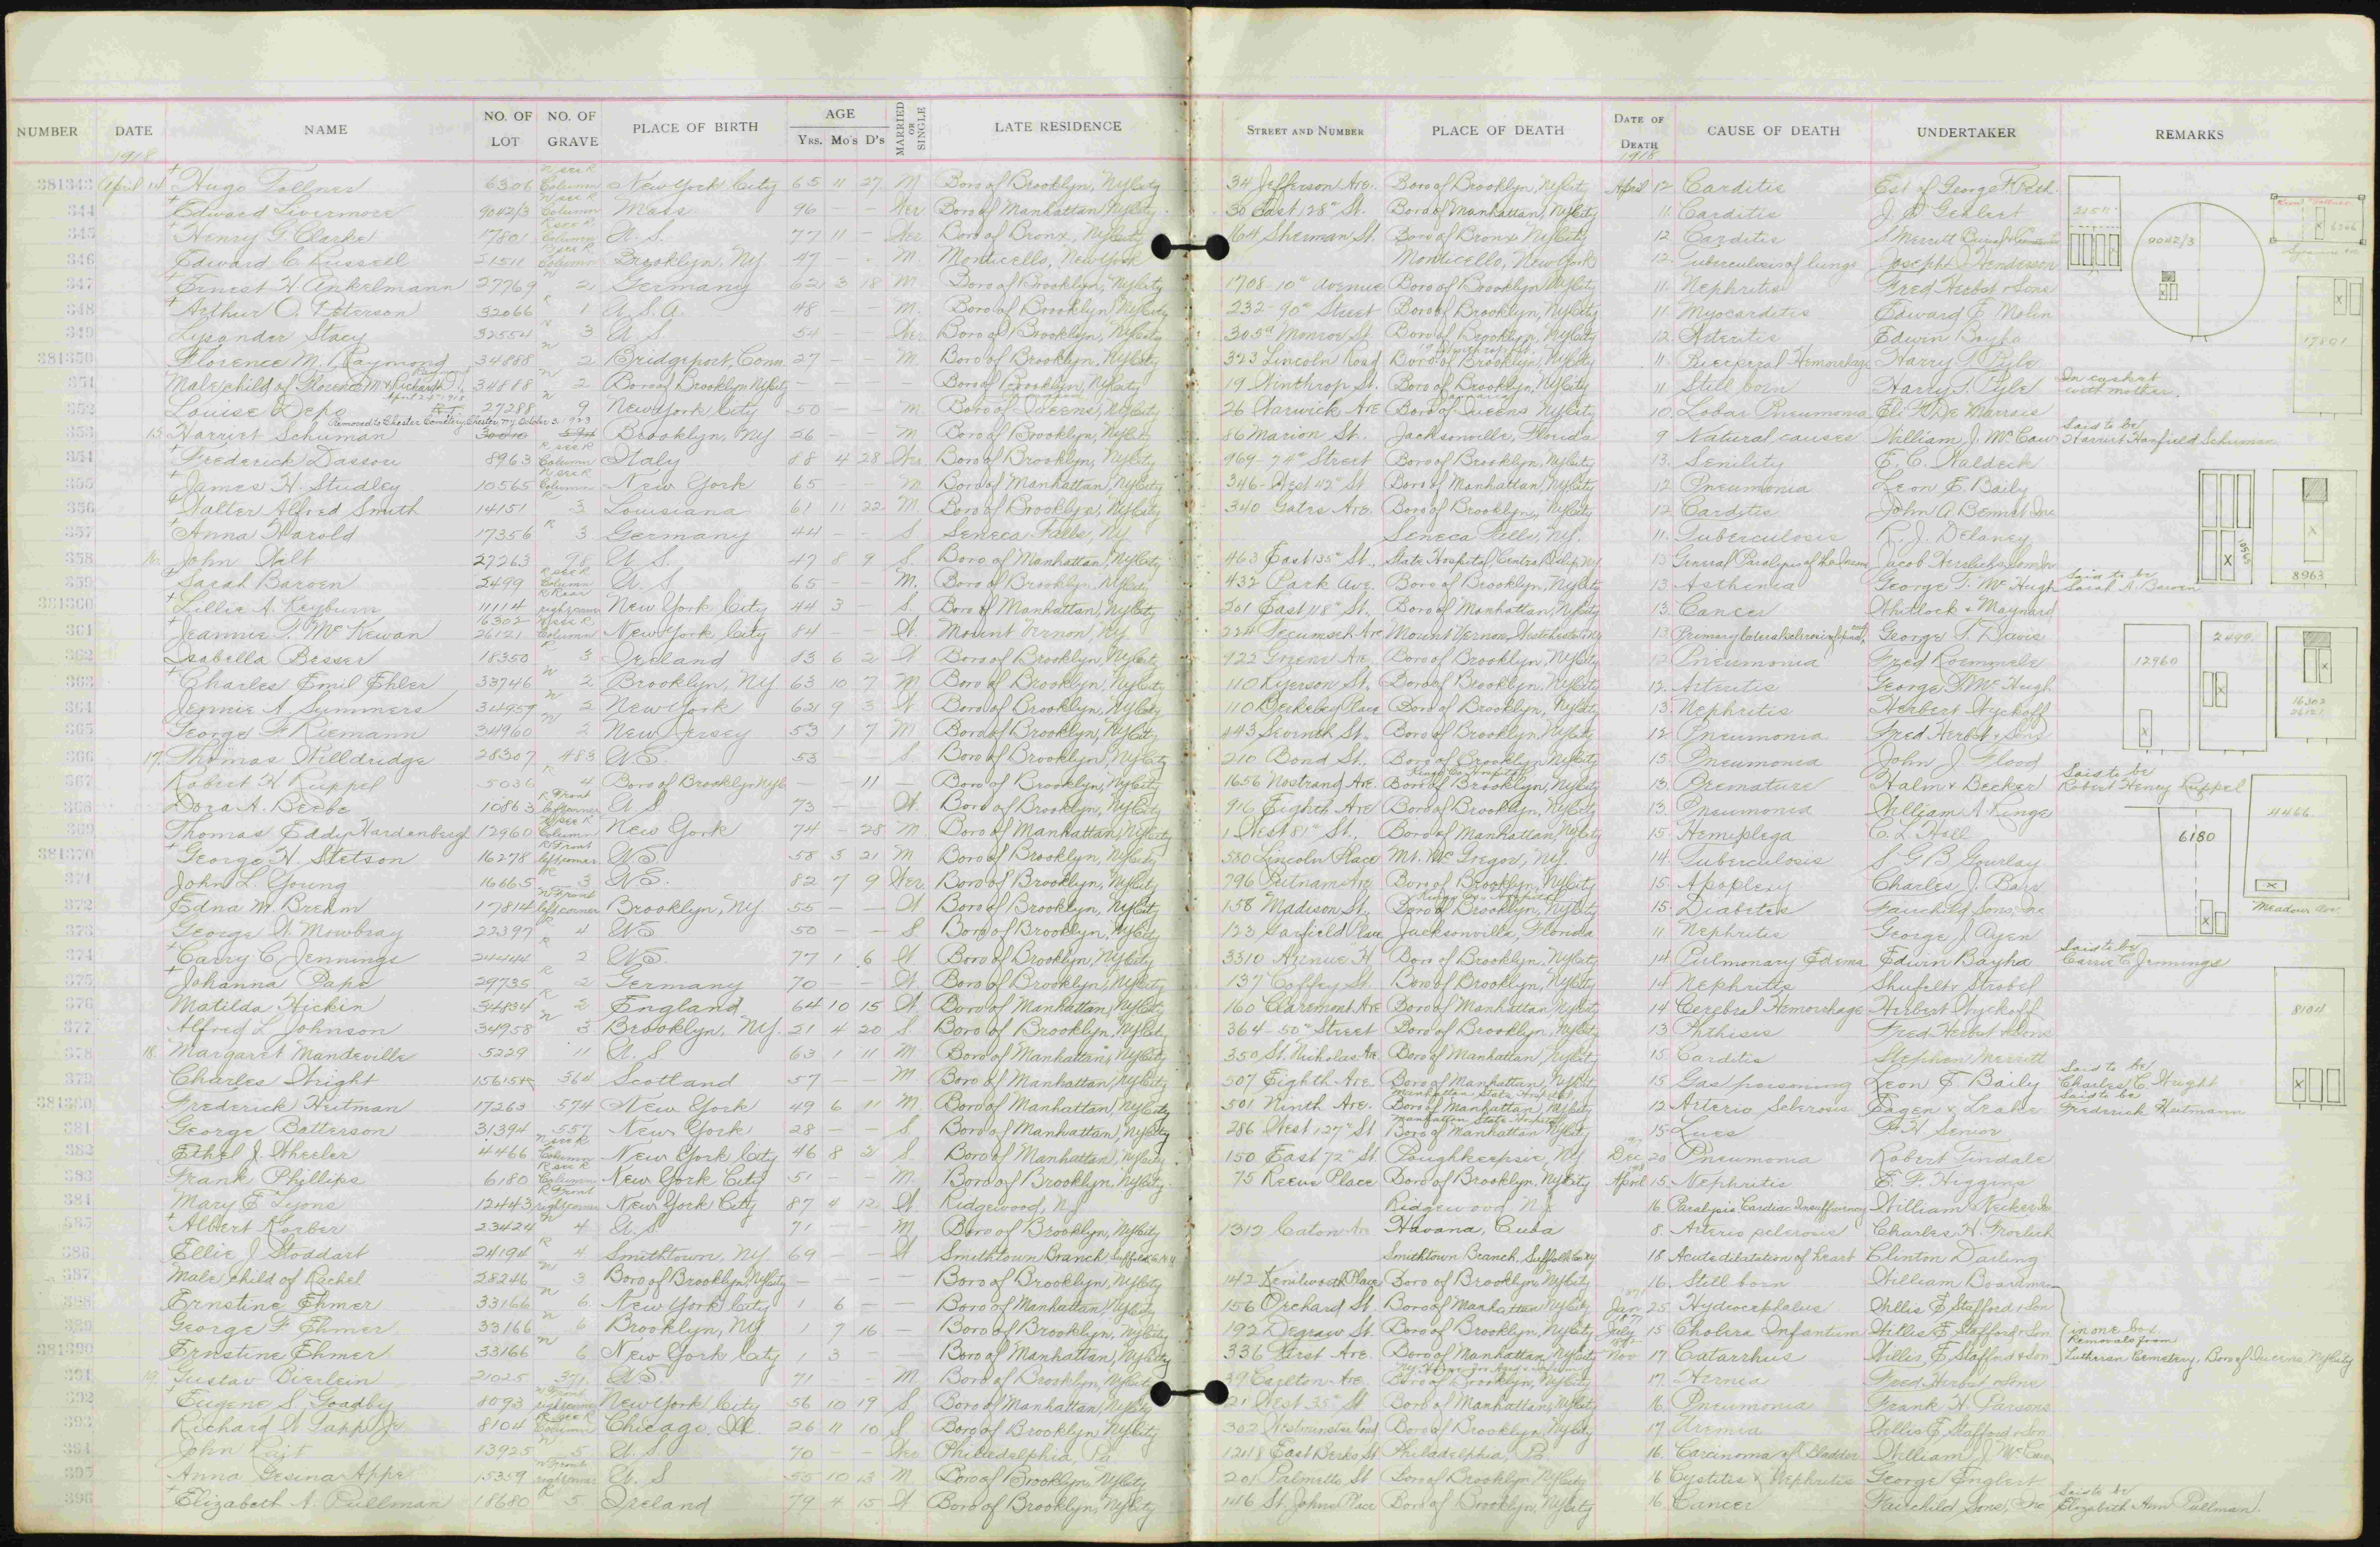 NUMBER DATE NAME NO. OF LOT NO. OF GRAVE PLACE OF BIRTH AGE Yrs. Mo's D's MARRIED OR SINGLE LATE RESIDENCE STREET AND NUMBER PLACE OF DEATH DATE OF DEATH CAUSE OF DEATH UNDERTAKER REMARKS
1918 1918
381343 April 14 Hugo Tollner 6306 New York City 65 11 27 M Boro of Brooklyn, NyCity 34 Jefferson Ave. Boro of Brooklyn, NyCity April 12 Carditis
344 Edward Livermore 9042/3 Column Mass 96 – – Wer Boro of Manhattan, NyCity 30 East 128" St. Boro of Manhattan, NyCity 11 Carditis
345 Henry G. Clarke 17801 Column U. S. 77 11 – Wer Boro of Bronx, NyCity 164 Sherman St. Boro of Bronx, NyCity 12 Carditis
346 Edward C. Russell 21511 Column Brooklyn, Ny 47 – M. Monticello, New York Monticello, New York 12 Tuberculosis of lungs Joseph J. Henderson
347 Ernest H. Ankelmann 27769 2 Germany 62 3 18 M Boro of Brooklyn, NyCity 1708-10" Avenue Boro of Brooklyn, NyCity 11 Nephritis Fred Herbst & Sons
348 Arthur O. Peterson 32066 1 U. S. A. 48 – – M. Boro of Brooklyn, NyCity 232-90" Street Boro of Brooklyn, NyCity 11 Myocarditis Edward F. Molin
349 Lysander Stacy 32554 3 U. S. 54 – – Wer Boro of Brooklyn, NyCity 305a Monroe St Boro of Brooklyn, NyCity 12 Arteritis Edwin Bayha
381350 Florence M. Raymond 34888 2 Bridgeport, Conn. 27 – – M. Boro of Brooklyn, NyCity 323 Lincoln Road Boro of Brooklyn, NyCity 11 Puerperal Hemorrhage Harry T. Pyle
351 Male child of Florence M. & Richard D. 34888 2 Boro of Brooklyn NyCity – – – Boro of Brooklyn, NyCity 19 Winthrop St. Boro of Brooklyn, NyCity 11 Still born Harry T. Pyle In casket with mother.
352 Louise Depo 27288 9 New York City 50 – – M. Boro of Queens, NyCity 26 Warwick Ave Boro of Queens, NyCity 10 Lobar Pneumonia
Removed to Chester Cemetery, Chester, Ny October 3, 1923
353 15 Harriet Schuman Brooklyn, Ny 26 – – M Boro of Brooklyn, NyCity 86 Marion St. Jacksonville, Florida 9 Natural causes William J. McCaw Said to be Harriet Hanfield Schuman
354 Frederick Dassori 8963 Column Italy 88 4 28 Wer Boro of Brooklyn, NyCity 969-74" Street Boro of Brooklyn, NyCity 13 Senility E. C. Waldeck
355 James H. Studley 10565 Column New York 65 – – M Boro of Manhattan, NyCity 346 West 42" St Boro of Manhattan, NyCity 12 Pneumonia Leon E. Baily
356 Walter Alfred Smith 14151 3 Louisiana 61 11 22 M. Boro of Brooklyn, NyCity 340 Gates Ave. Boro of Brooklyn, NyCity 12 Carditis John A. Bennet
357 Anna Harold 17356 3 Germany 44 – – S Seneca Falls, Ny Seneca Falls, Ny. 11 Tuberculosis R. J. Delaney
358 16 John Walt 27263 98 U. S. 47 8 9 S. Boro of Manhattan, NyCity 463 East 135" St. State Hospital Central Islip Ny 13 General Paralysis of the Insane
359 Sarah Barven 2499 Column U. S. 65 – – M. Boro of Brooklyn, NyCity 432 Park Ave. Boro of Brooklyn, NyCity 13 Asthenia George T. McHugh Said to be
381360 Lillie A. Reyburn 11114 New York City 44 3 – S. Boro of Manhattan, NyCity 201 East 118" St. Boro of Manhattan, NyCity 13 Cancer Whitlock & Maynard
361 Jeannie T. McKewan 16302 26121 Column New York City 84 – – W. Mount Vernon, Ny 224 Tecumseh Ave Mount Vernon, 13 George T. Davis
362 Isabella Besser 18350 3 Ireland 83 6 2 W Boro of Brooklyn, NyCity 922 Greene Ave. Boro of Brooklyn, NyCity 12 Pneumonia Fred Roemmele
363 Charles Emil Ehler 33746 2 Brooklyn, Ny 63 10 7 M Boro of Brooklyn, NyCity 110 Ryerson St. Boro of Brooklyn, NyCity 12 Arteritis George T. McHugh
364 Jennie A. Summers 34959 2 New York 62 9 3 W Boro of Brooklyn, NyCity 110 Berkeley Place Boro of Brooklyn, NyCity 13 Nephritis Herbert Wyckoff
365 George F. Riemann 34960 2 New Jersey 53 1 7 M Boro of Brooklyn, NyCity 443 Seventh St. Boro of Brooklyn, NyCity 12 Pneumonia Fred Herbst & Sons
366 17 Thomas Willdridge 28307 483 U.S. 53 – – S Boro of Brooklyn, NyCity 210 Bond St. Boro of Brooklyn, NyCity 15 Pneumonia John J. Flood
367 Robert H. Ruppel 5036 4 Boro of Brooklyn NyC – – 11 – Boro of Brooklyn, NyCity 1656 Nostrand Ave. Boro of Brooklyn, NyCity 13 Premature Halm & Becker Said to be Robert Henry Ruppel
368 Dora A. Beebe 10863 U. S. 73 – – W. Boro of Brooklyn, NyCity 916 Eighth Ave Boro of Brooklyn, NyCity 13 Pneumonia William A. Ringe
369 Thomas Eddy Hardenbergh 12960 Column New York 74 – 28 M. Boro of Manhattan, NyCity 1 West 81" St. Boro of Manhattan, NyCity 15 Hemiplega C. L. Hall
381370 George H. Stetson 16278 left corner U.S. 58 3 21 M Boro of Brooklyn, NyCity 580 Lincoln Place Mt. McGregor, Ny. 14 Tuberculosis S G B Gourlay
371 John L. Young 16665 3 U.S. 82 7 9 Wer Boro of Brooklyn, NyCity 796 Putnam Ave Boro of Brooklyn, NyCity 15 Apoplexy Charles J. Barr
372 Edna M. Brehm 17814 left corner Brooklyn, Ny 55 – – W Boro of Brooklyn, NyCity 158 Madison St. Boro of Brooklyn, NyCity 15 Diabetes Fairchild Sons, Inc
373 George W. Mowbray 22397 4 U.S. 50 – – S Boro of Brooklyn, NyCity 123 Garfield Place Jacksonville, Florida 11 Nephritis George J. Ayen
374 Carry C. Jennings 24444 2 U.S. 77 1 6 W Boro of Brooklyn, NyCity 3310 Avenue H Boro of Brooklyn, NyCity 14 Pulmonary Edema Edwin Bayha Said to be Carrie C. Jennings
375 Johanna Pape 29735 2 Germany 70 – – W. Boro of Brooklyn, NyCity 137 Coffey St. Boro of Brooklyn, NyCity 14 Nephritis Shufelt & Strobel
376 Matilda Hickin 34834 2 England 64 10 15 W Boro of Manhattan, NyCity 160 Claremont Ave Boro of Manhattan, NyCity 14 Cerebral Hemorrhage Herbert Wyckoff
377 Alfred L. Johnson 34958 3 Brooklyn, Ny. 21 4 20 S Boro of Brooklyn, NyCity 364-50" Street Boro of Brooklyn, NyCity 13 Phthisis Fred Herbst & Sons
378 18 Margaret Mandeville 5229 11 U. S 63 1 11 M Boro of Manhattan, NyCity 350 St. Nicholas Ave Boro of Manhattan, NyCity 15 Carditis Stephen Merritt
379 Charles Wright 364 Scotland 57 – – M. Boro of Manhattan, NyCity 507 Eighth Ave. Boro of Manhattan, NyCity 15 Gas poisoning Leon E. Baily Said to be Charles C. Wright
381380 Frederick Heitman 17263 574 New York 49 6 11 M Boro of Manhattan, NyCity 501 Ninth Ave. Manhattan State Hospital Boro of Manhattan, NyCity 12 Arterio Sclerosis Eagen & Leake Said to be Frederick Heitmann
381 George Batterson 31394 557 New York 28 – – S Boro of Manhattan, NyCity 286 West 127" St Manhattan State Hospital Boro of Manhattan NyCity 15 Lues F. H. Senior
382 Ethel J. Wheeler 4466 Column New York City 46 8 2 S Boro of Manhattan, NyCity 150 East 72" St Poughkeepsie, Ny Dec 20 Pneumonia Robert Tindale
383 Frank Phillips 6180 Column New York City 51 – – M. Boro of Brooklyn, NyCity 75 Reeve Place Boro of Brooklyn, NyCity April 15 Nephritis E. F. Higgins
384 Mary E. Lyons 12443 right corner New York City 87 4 12 W. Ridgewood, NJ Ridgewood, NJ 16 Paralysis Cardiac Insufficiency
385 Albert Korber 23424 4 U. S 71 – – M Boro of Brooklyn, NyCity 1312 Caton Ave Havana, Cuba 8 Arterio sclerosis Charles H. Froelich
386 Ellie J. Stoddart 24194 4 Smithtown, Ny 69 – – W Smithtown Branch, Smithtown Branch, Suffolk Co Ny 18 Acute dilatation of heart Clinton Darling
387 Male child of Rachel 28246 3 Boro of Brooklyn, NyCity – – – Boro of Brooklyn, NyCity 142 Kenilworth Place Boro of Brooklyn, NyCity 16 Still born William Boardman
388 Ernstine Ehmer 33166 6 New York City 1 6 – – Boro of Manhattan, NyCity 156 Orchard St. Boro of Manhattan NyCity Jan 25 Hydrocephalus Willis E. Stafford & Son
389 George F. Ehmer 33166 6 Brooklyn, Ny 1 7 16 – Boro of Brooklyn, NyCity 192 Degraw St. Boro of Brooklyn, NyCity July 15 Cholera Infantum Willis E. Stafford & Son in one box Removals from
381390 Ernstine Ehmer 33166 6 New York City 1 3 – – Boro of Manhattan, NyCity 336 First Ave. Boro of Manhattan, NyCity Nov 17 Catarrhus Willis E. Stafford & Son Lutheran Cemetery, Boro of Queens, NyCity
391 19 Gustav Bierlein 21025 371 U.S. 71 – – M. Boro of Brooklyn, NyCity 39 Carlton Ave. Boro of Brooklyn, NyCity 17 Hernia Fred Herbst & Sons
392 Eugene S. Goadby 8093 New York City 56 10 19 S Boro of Manhattan, NyCity 21 West 35" St Boro of Manhattan, NyCity 16 Pneumonia Frank H. Parsons
393 Richard W. Tapp Jr 8104 Column Chicago, Ill. 26 11 10 S Boro of Brooklyn, NyCity 302 Westminster Road Boro of Brooklyn, NyCity 17 Uremia Willis E. Stafford & Son
394 John Rait 13925 5 U. S 70 – – Wer Philadelphia, Pa 1248 East Berks St Philadelphia, Pa. 16 Carcinoma of Bladder William J. McCaw
395 Anna Gesina Appe 15359 right corner U. S 55 10 13 M. Boro of Brooklyn, NyCity 201 Palmetto St Boro of Brooklyn NyCity 16 Cystitis & Nephritis George Englert
396 Elizabeth A. Pullman 18680 5 Ireland 79 4 15 W. Boro of Brooklyn, NyCity 1186 St. Johns Place Boro of Brooklyn, NyCity 16 Cancer Fairchild Sons, Inc Said to be Elizabeth Ann Pullman
21511
9042/3
6306
17801
10565
8963
12960
2499
16302
26121
4466
6180
Meadow Ave
8104